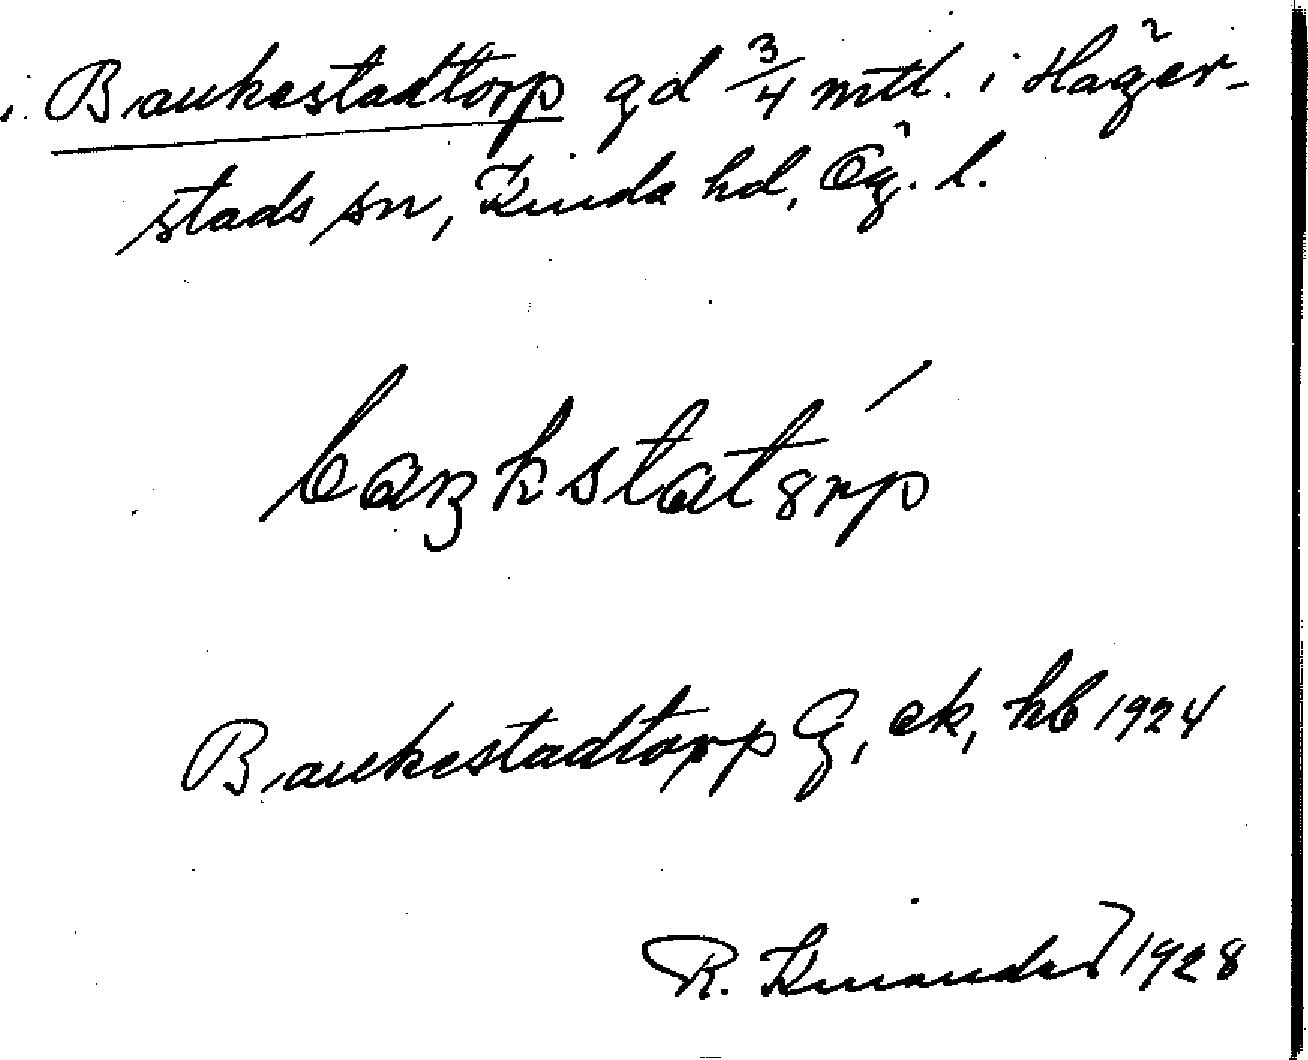 Bankestadtorp gd 3/4 mtl. i Häger-
stads sn, Kinda hd, Ög. l.
baŋkstatȣrp ´
Bankestadtorp G, ek, kb 1924
R. Kinander 1928